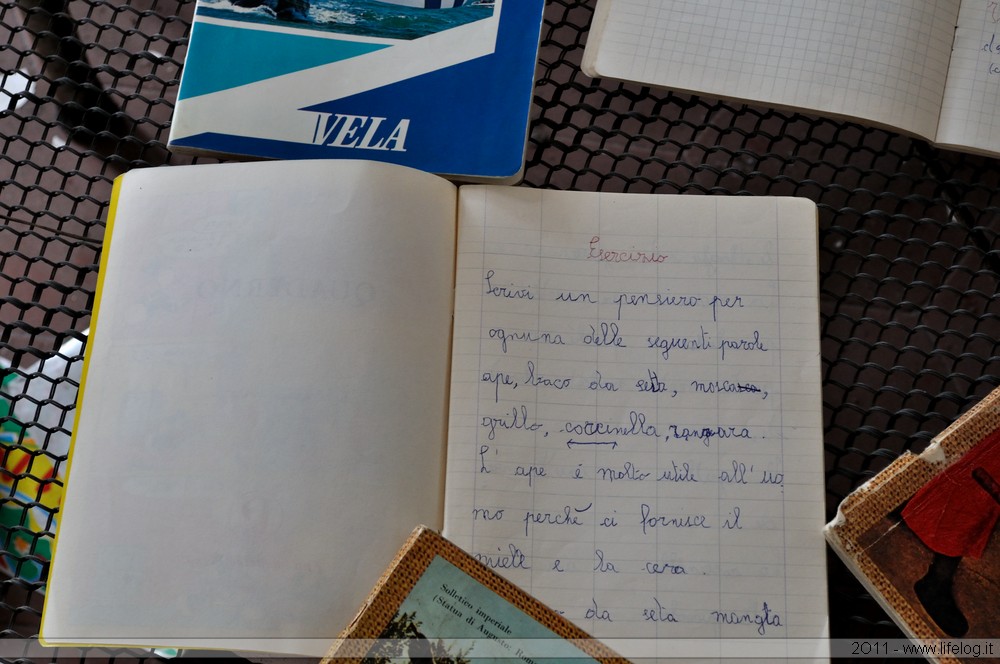 VELA
Esercizio
Scrivi un pensiero per
ognuna delle seguenti parole
ape, baco da seta, mosca,
grillo, coccinella, zanzara.
L' ape é molto utile all' uo
mo perché ci fornisce il
miele e la cera.
da seta mangia
Solletico imperiale
(Statua di Augusto: Roma
2011 - www.lifelog.it